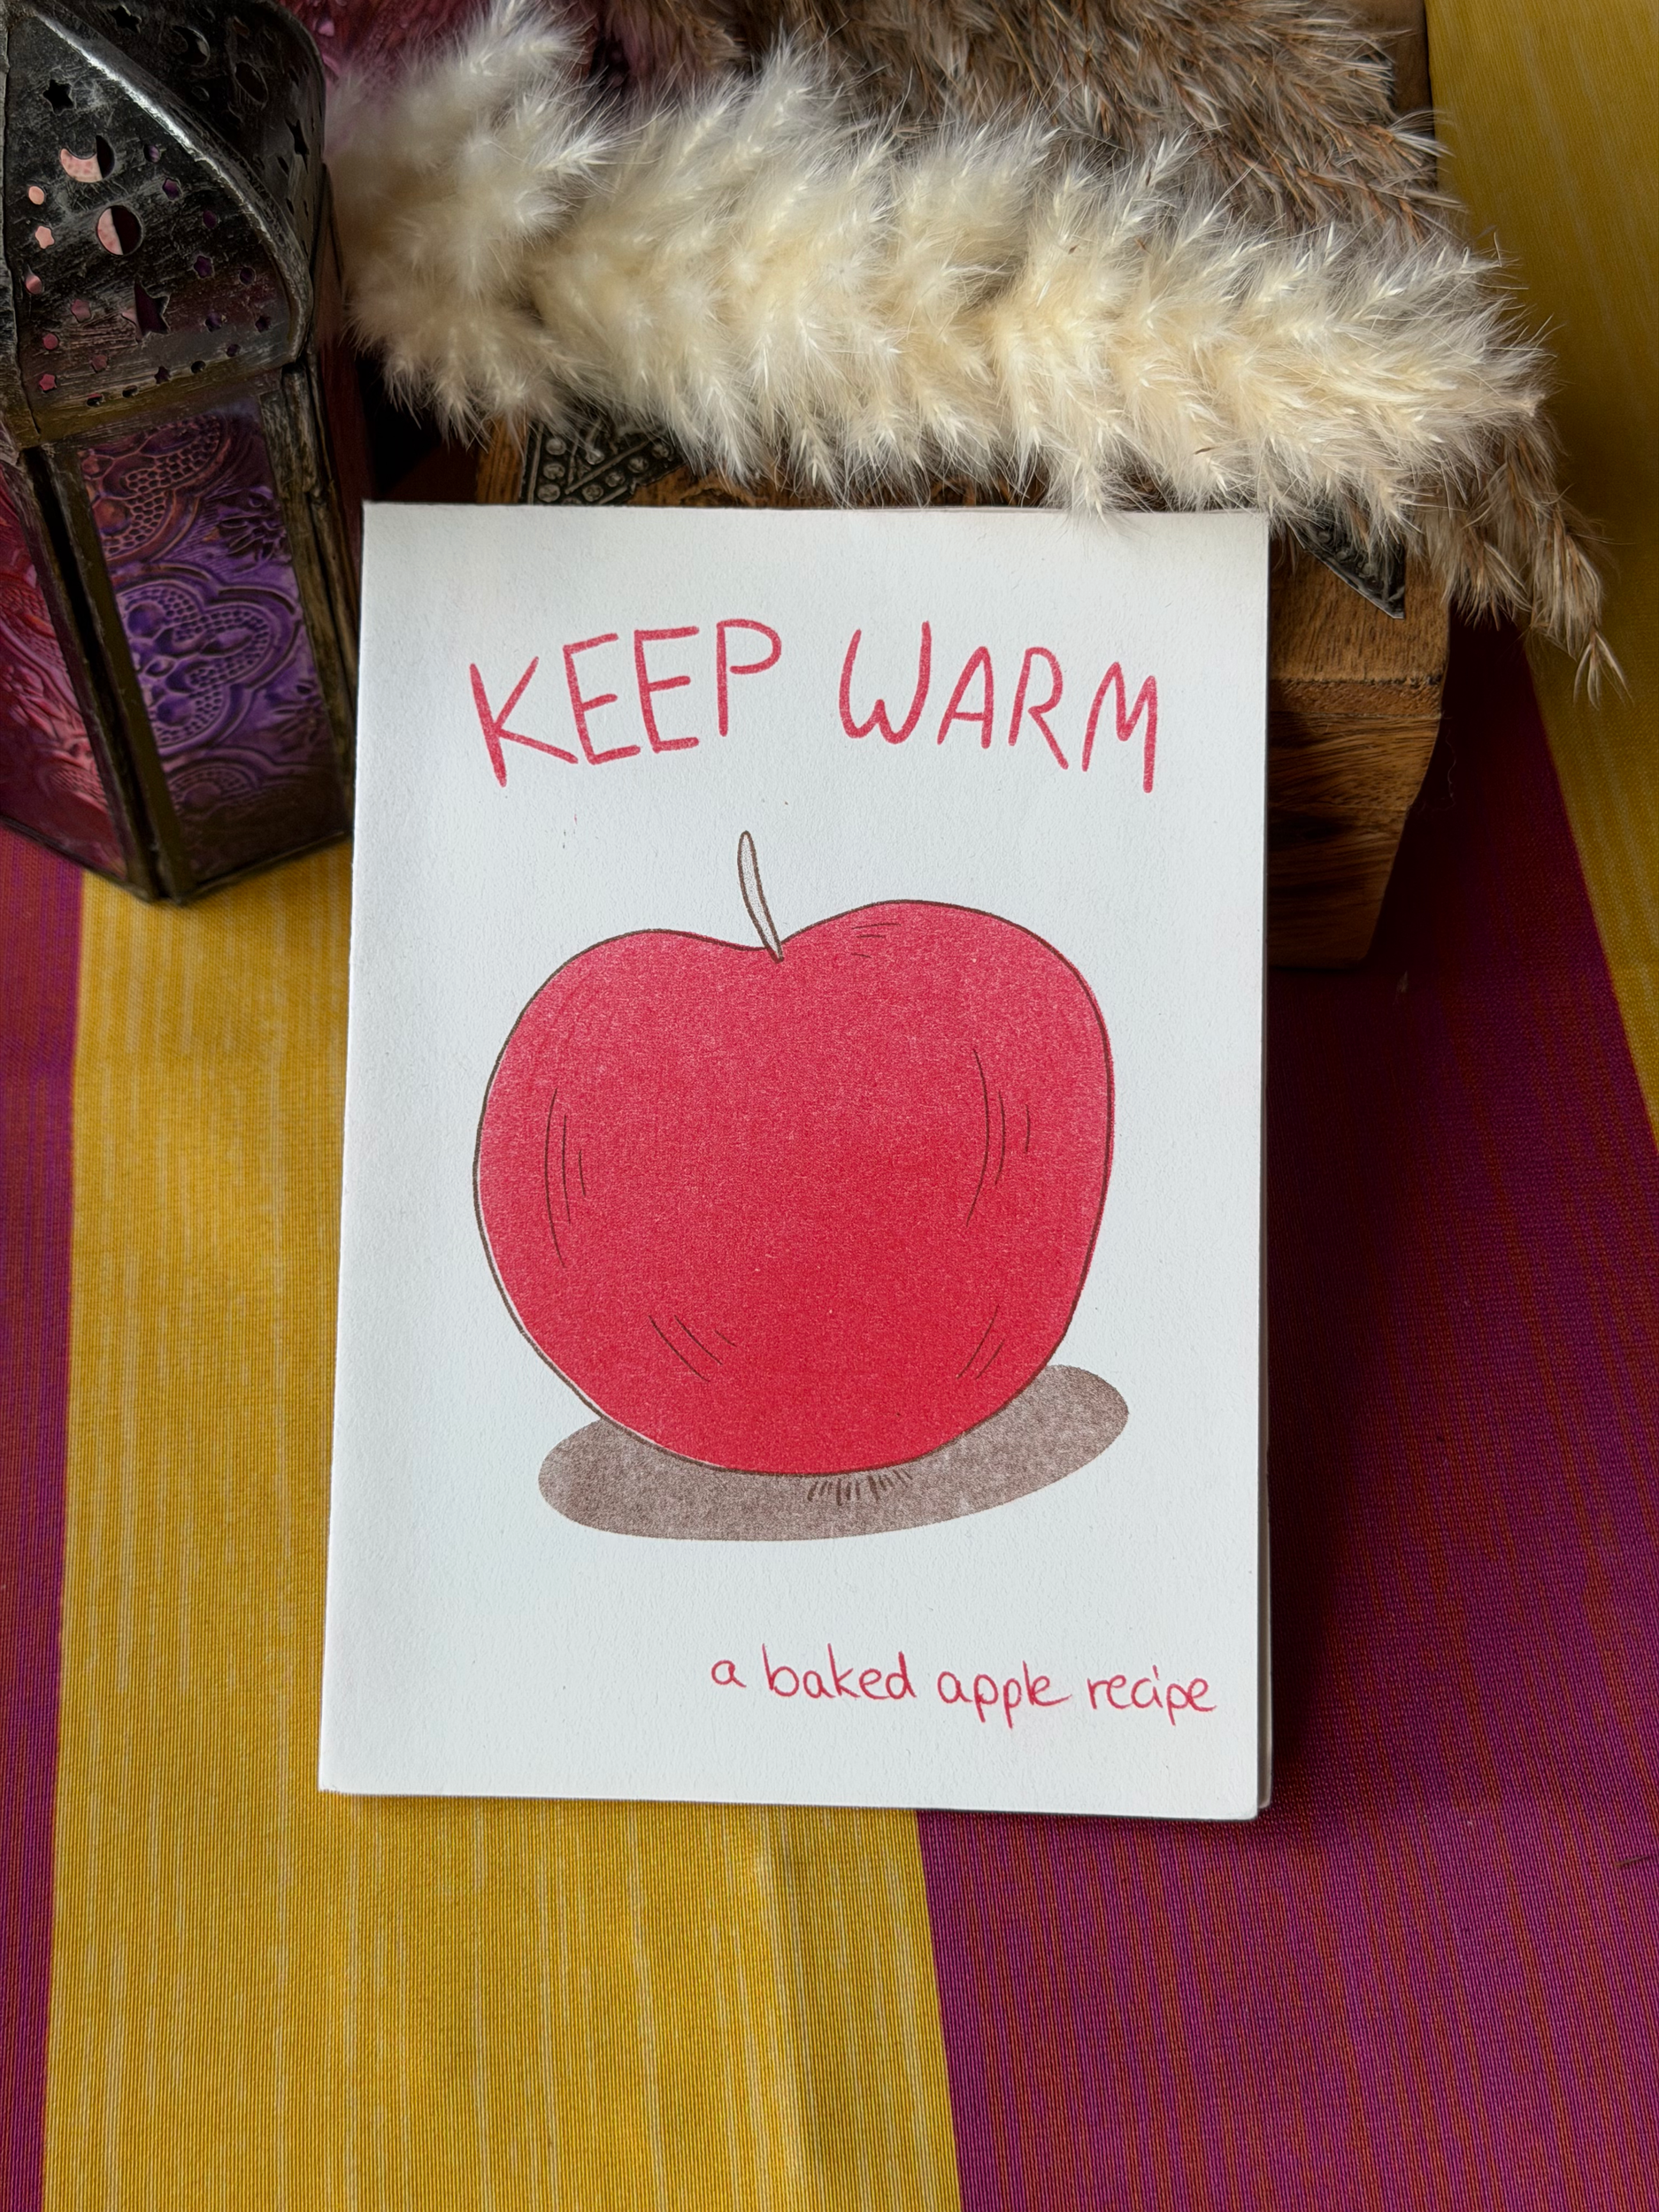 KEEP WARM
a baked apple recipe